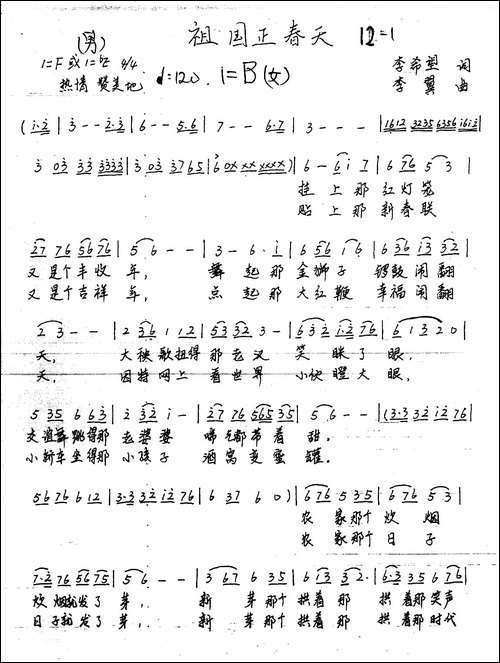 祖国正春天 12=1
(男)
1=F 或 1=♭E 4/4
李希望 词
热情 赞美地 ♩=120. 1=B(女)
李翼 曲
(i·2 | 3 - - 2·3 | 6 - - 5·6 | 7 - - 6·7 | 3 - - - | 1612 3235 6356 i6i3
挂上那红灯笼
贴上那新春联
又是个丰收年, 舞起那金狮子 锣鼓闹翻
又是个吉祥年, 点起那大红鞭 幸福闹翻
2 3 - - | 2 36 1 12 | 53 32 3 - | 632 i·2 76 | 6 1 3 2 0 |
天, 大秧歌扭得那老汉 笑眯了眼,
天, 因特网上看世界 小伙瞪大眼,
5 35 6 63 | 2 32 i - | 27 76 565 35 | 5 6 - - | (3·3 32 i2 76 |
交谊舞跳得那老婆婆 喘气都带着甜。
小轿车坐得那小孩子 酒窝变蜜罐。
56 76 6 12 | 3·3 32 i2 76 | 6 37 6 0) | 6 76 5 3·5 | 6 76 5 3 |
农家那个炊烟
农家那个日子
7·2 76 56 75 | 5 6 - - | 3 67 6 35 | 6 i3 32· | 6·3 35 6 76 |
炊烟就发了芽, 新芽那个拱着那 拱着那笑声
日子就发了芽, 新芽那个拱着那 拱着那时代